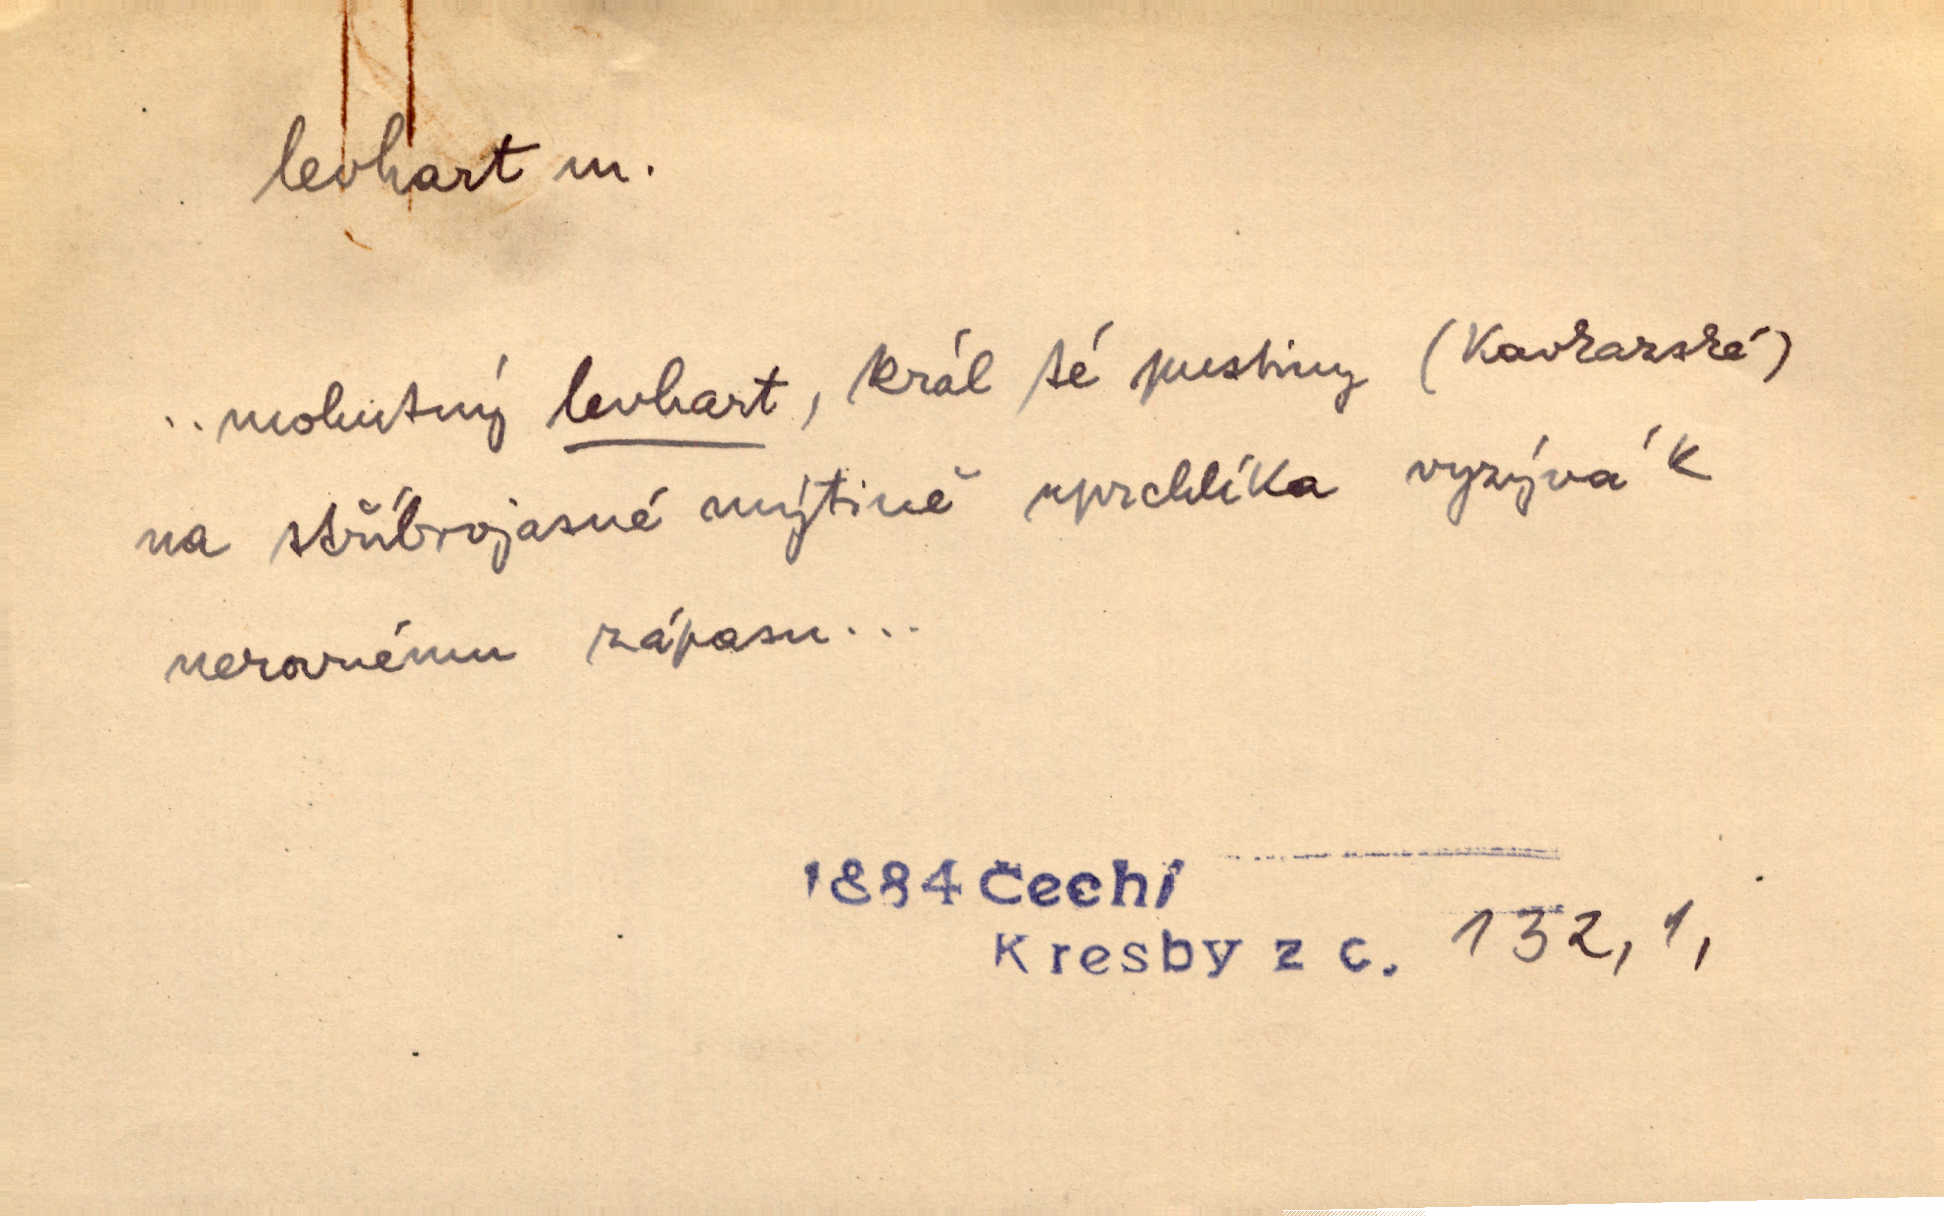 levhart m.
..mohutný levhart, král té pustiny (Kavkazské)
na stříbrojasné mýtině uprchlíka vyzývá k
nerovnému zápasu...
1884 Čech
Kresby z c. 132, 1,